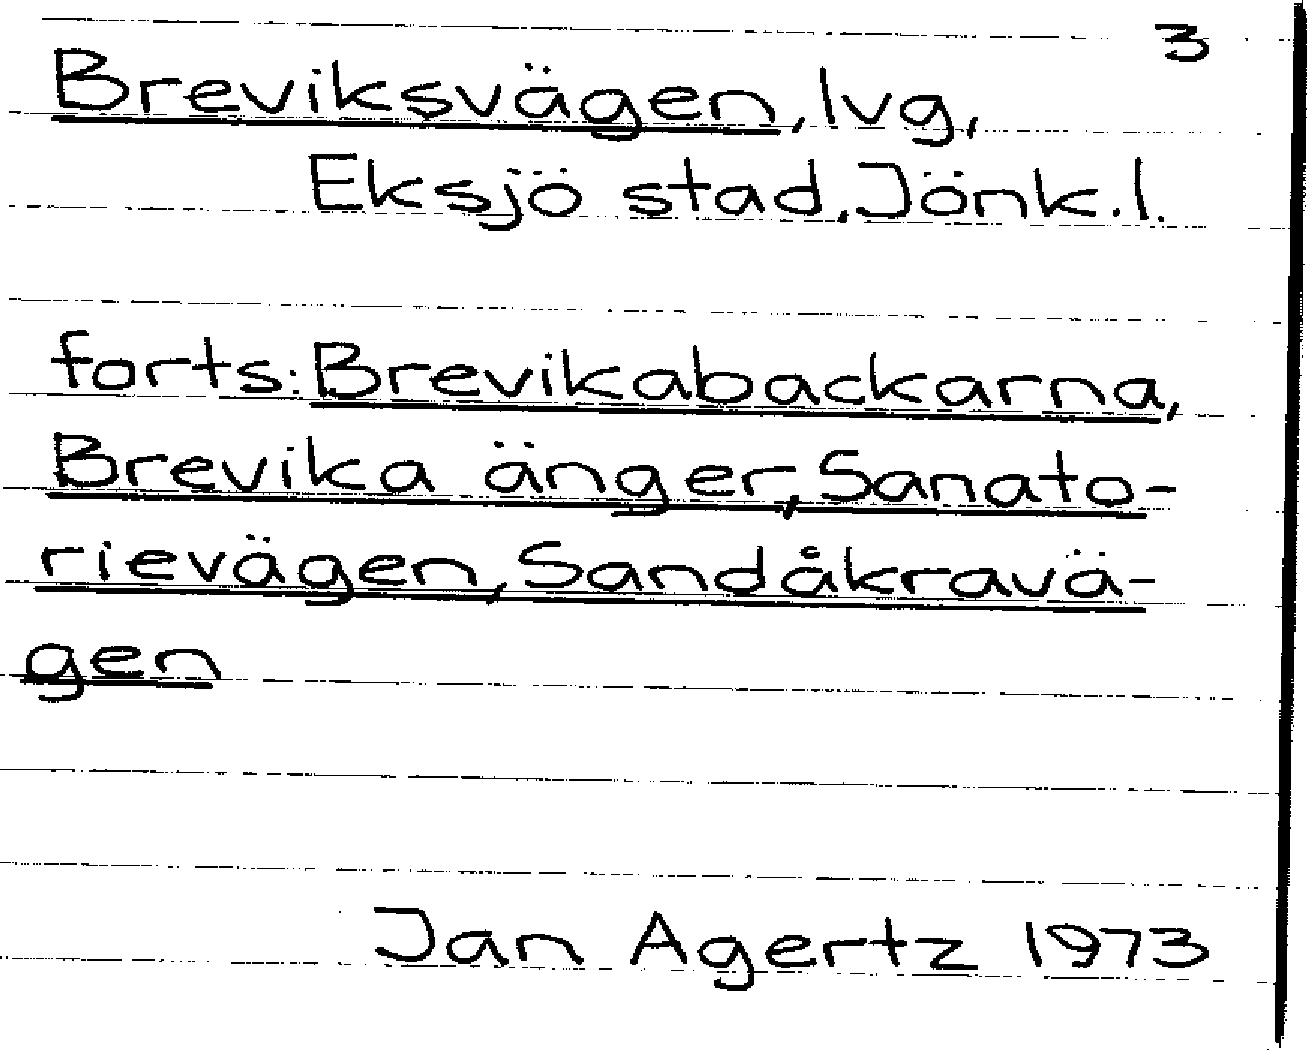 3
Breviksvägen, lvg,
Eksjö stad, Jönk.l.
forts: Brevikabackarna,
Brevika änger, Sanato-
rievägen, Sandåkravä-
gen
Jan Agertz 1973